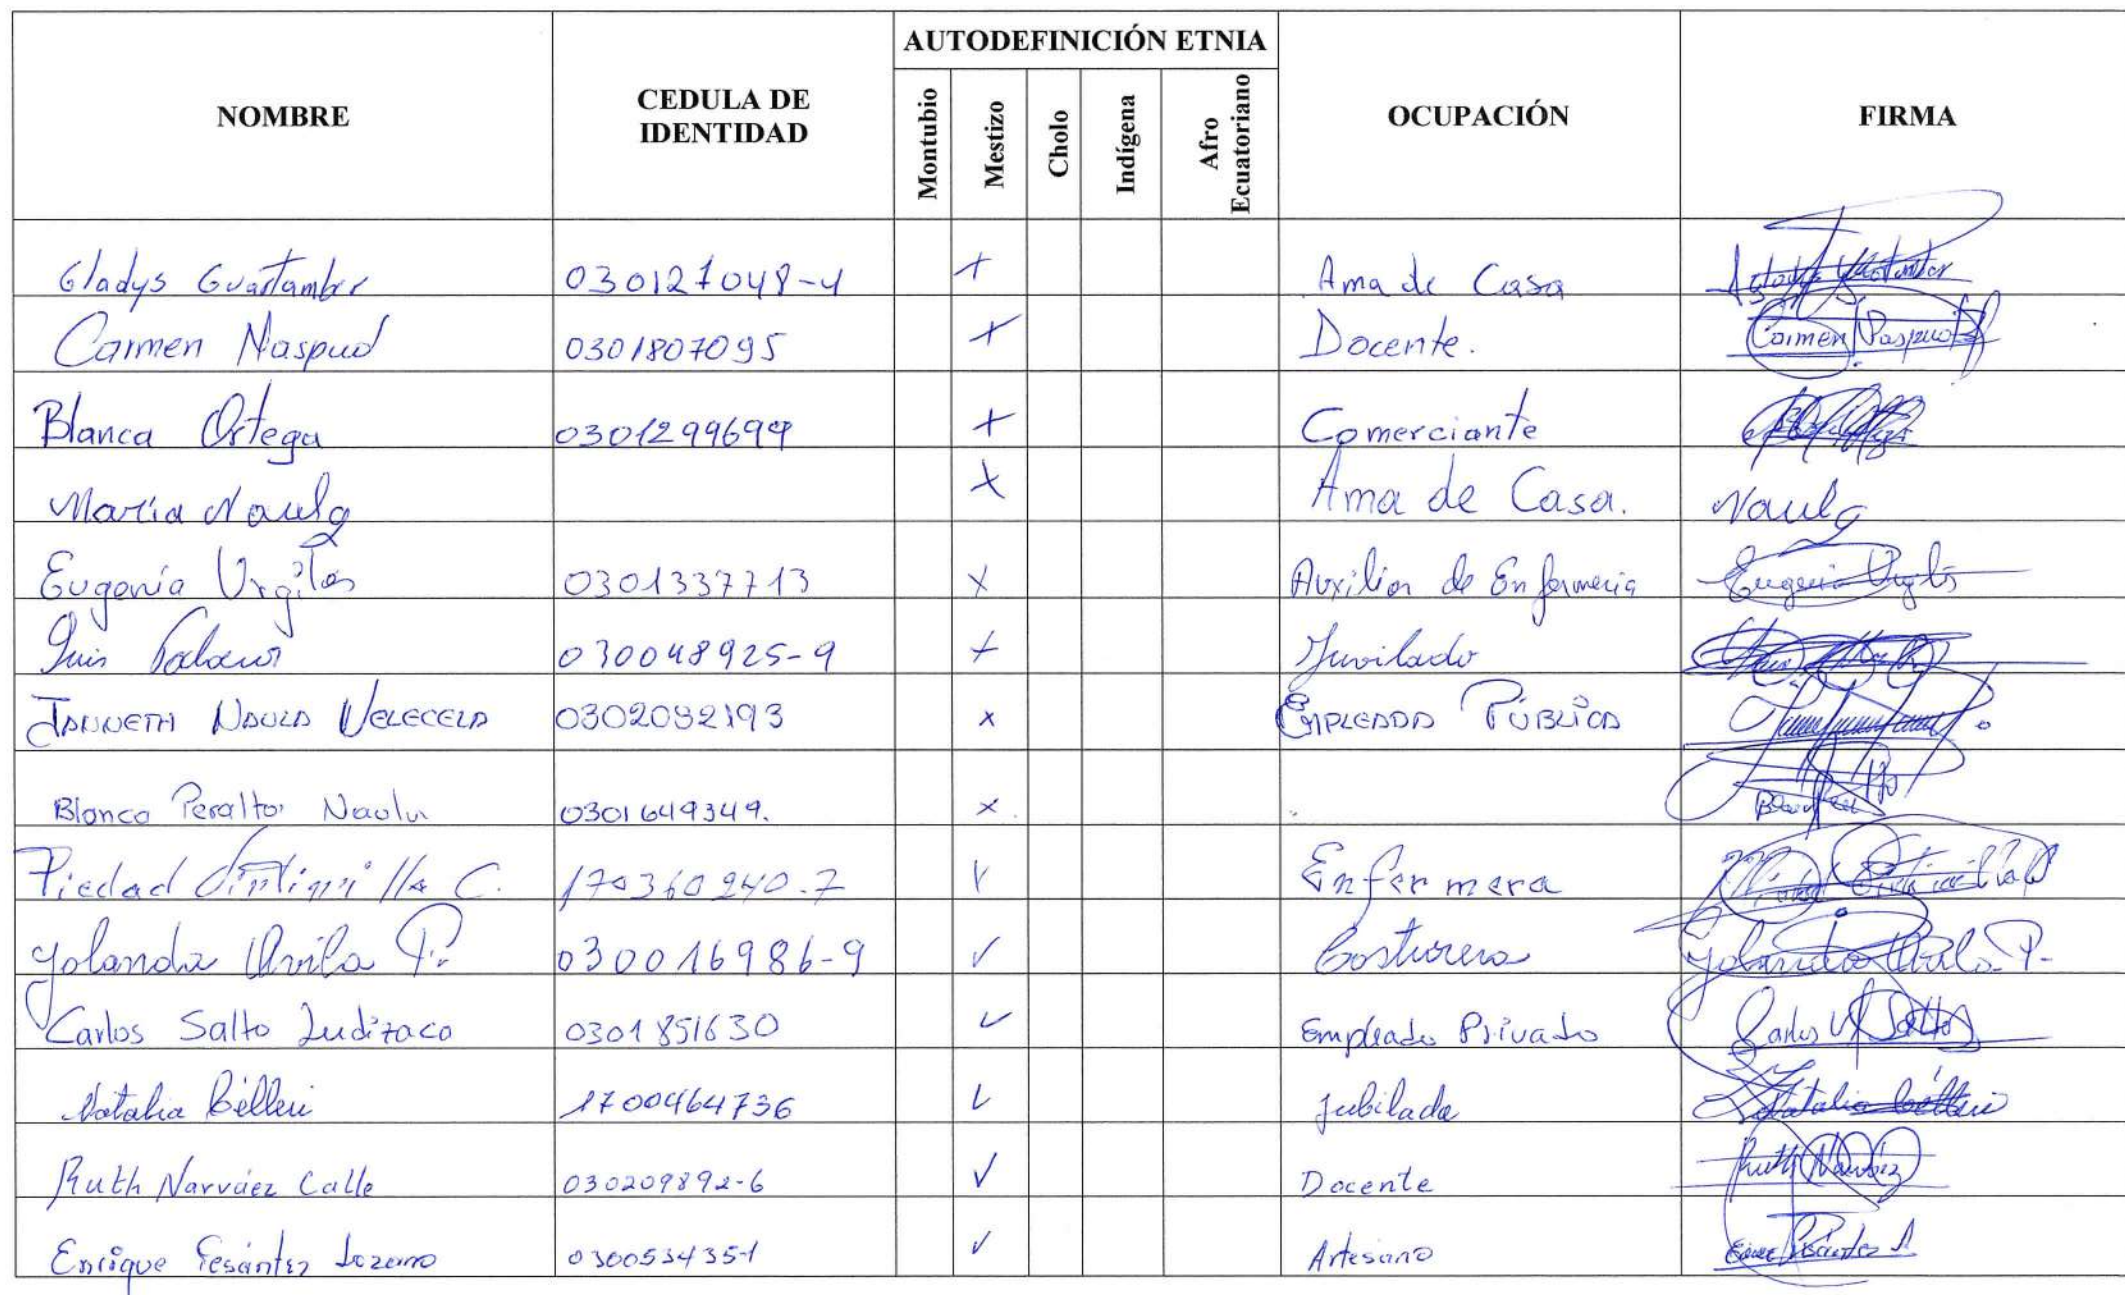 NOMBRE CEDULA DE IDENTIDAD AUTODEFINICIÓN ETNIA OCUPACIÓN FIRMA
Montubio Mestizo Cholo Indígena Afro Ecuatoriano
Gladys Guartamber 030127048-4 + Ama de Casa
Carmen Naspud 0301807095 + Docente. Carmen Naspud
Blanca Ortega 0301299699 + Comerciante
Maria Naula x Ama de Casa. Naula
Eugenia Urgilés 0301337713 x Auxiliar de Enfermeria Eugenia Urgilés
Luis 030048925-9 + Juvilado
JANNETH NAULA VELECELA 0302092193 x EMPLEADA PÚBLICA
Blanca Peralta Naula 0301649349. x
Piedad C. 170360240-7 ✓ Enfermera
Yolanda Avila P. 030016986-9 ✓ Costurera Yolanda Avila P.
Carlos Salto Ludizaca 0301851630 ✓ Empleado Privado Carlos Salto
Natalia Célleri 1700464736 ✓ Jubilada Natalia Célleri
Ruth Narváez Calle 030209892-6 ✓ Docente Ruth Narváez
Enrique Pesántez Lozano 030053435-1 ✓ Artesano